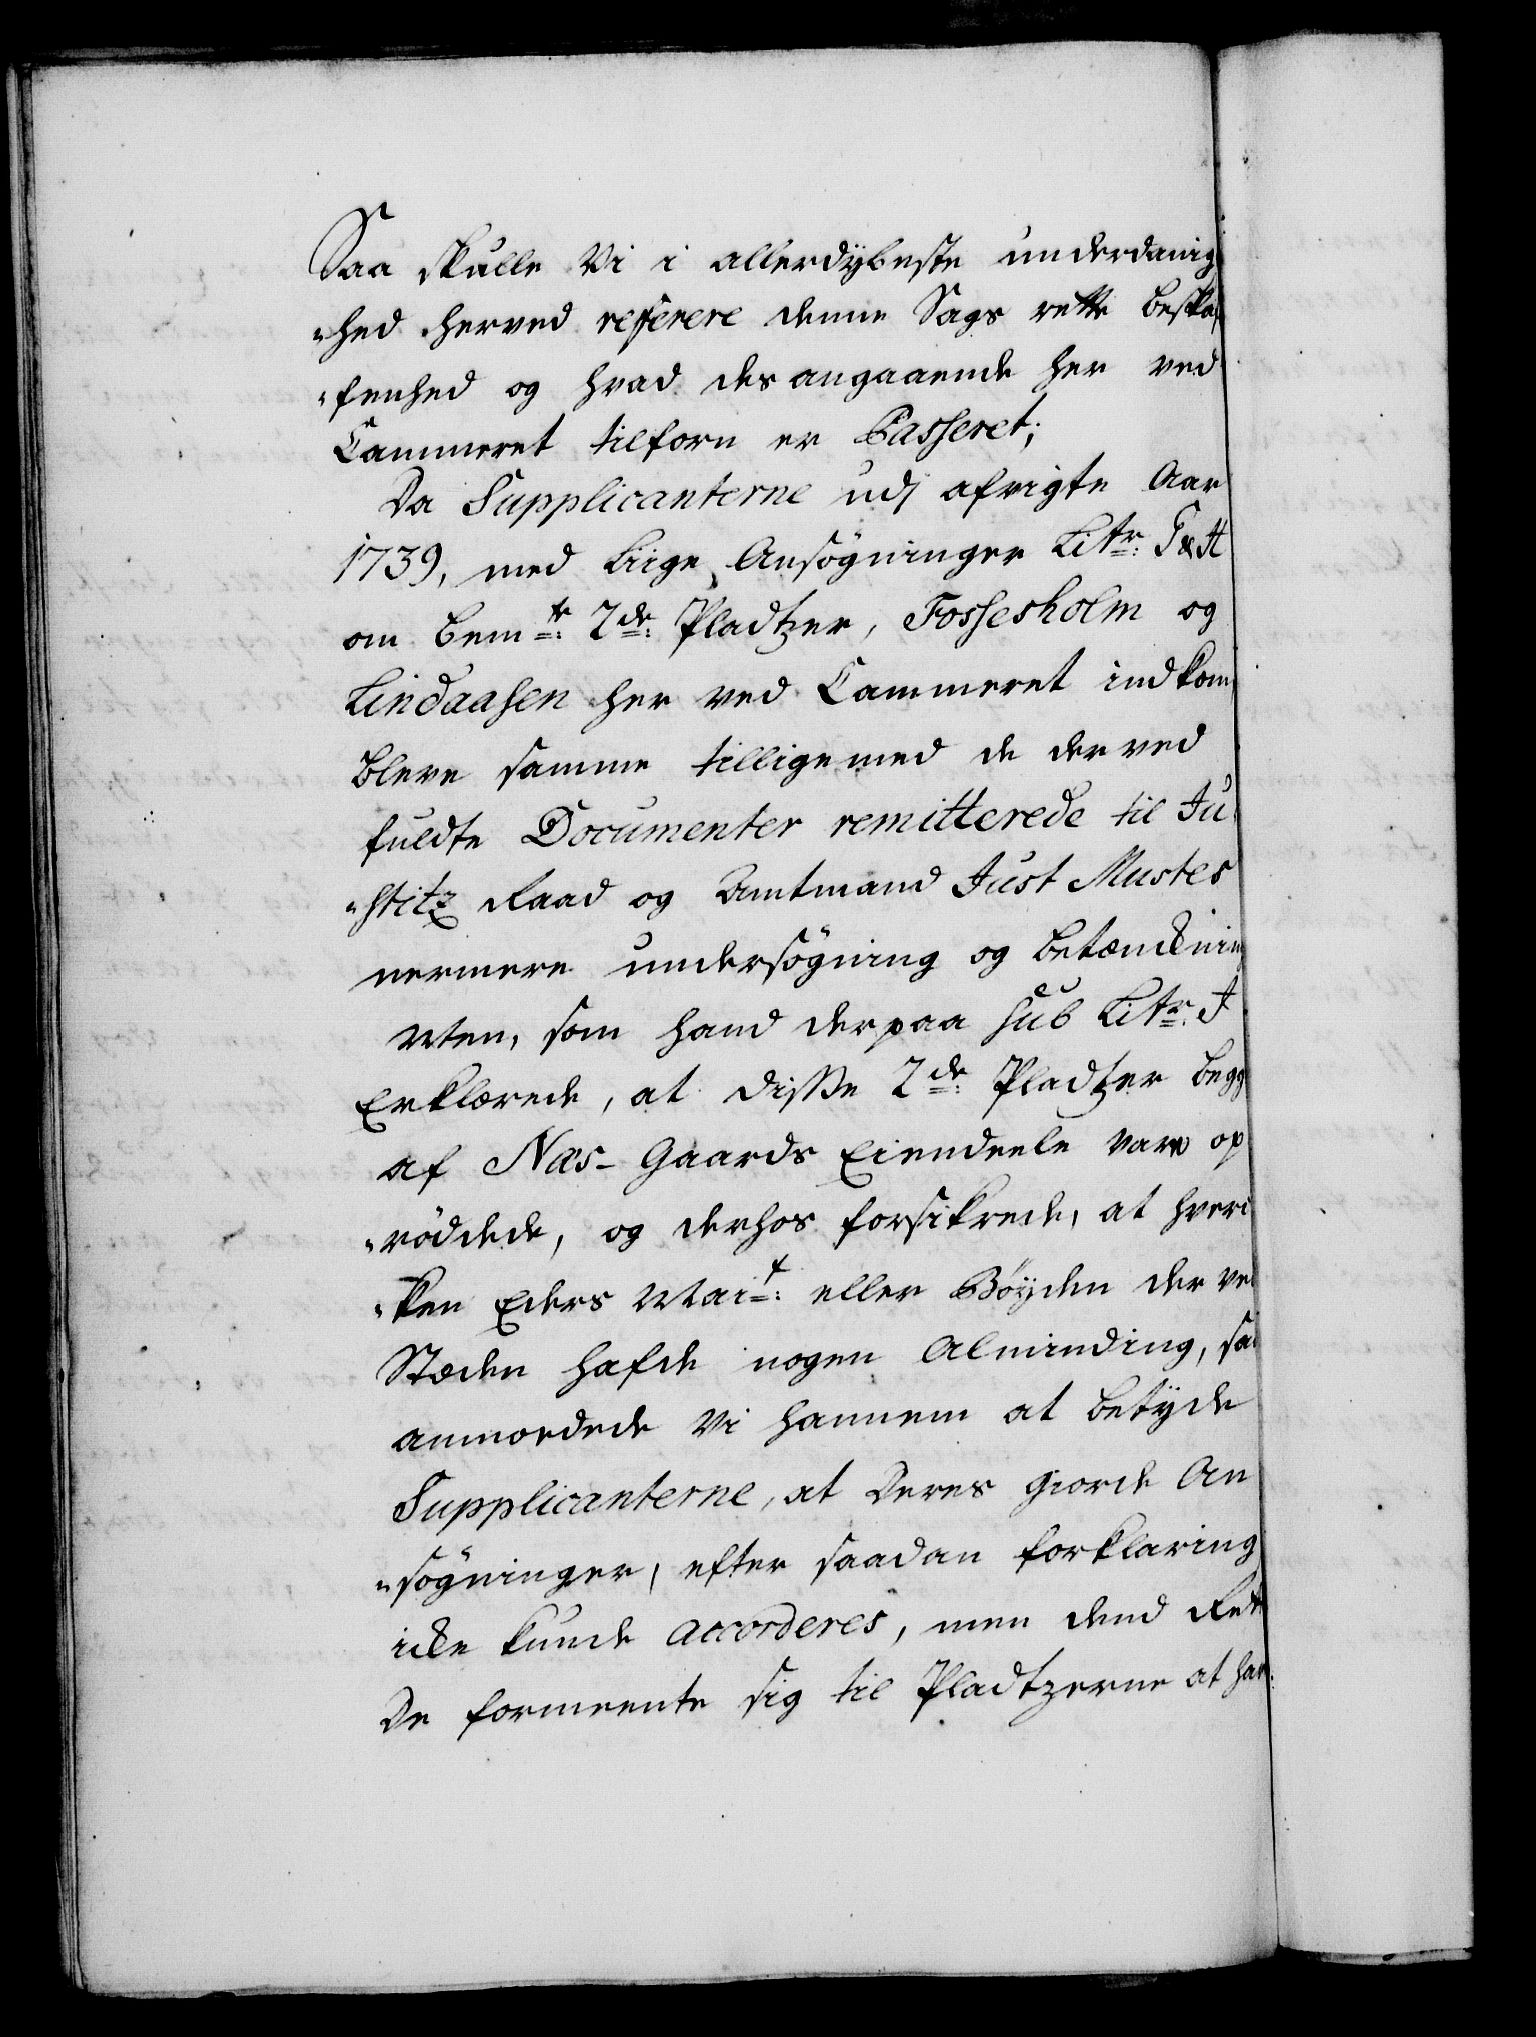 Saa skulle Vi i allerdÿbeste underdanig
"hed herved referere denne Sags rette beska
"fenhed og hvad des angaaende her ved
Cammeret tilforn er Passeret;
Da Supplicanterne udj afvigte Aar
1739, med Liige Ansøgninger Litr: G & H
om bemte: 2de: Pladtzer, Fossesholm og
Lindaasen her ved Cammeret indkom,
bleve samme tilligemed de derved
fuldte Documenter remitterede til Ju
"stitz Raad og Amtmand Just Mustes
nermere undersøgning og betænckning
Men, som hand derpaa sub Litr: I
Erklærede, at disse 2de: Pladtzer begge
af Næs-Gaards Eiendeele vare op
"røddede, og derhos forsikrede, at hveri
"ken Eders Mait: eller Bøyden der ved
Stæden hafde nogen Alminding, saa
anmodede Vi hannem at betyde
Supplicanterne, at deres giorde An
"søgninger, efter saadan forklaring
icke kunde accorderes, men dend Rett
De formeente sig til Pladtzerne at hav